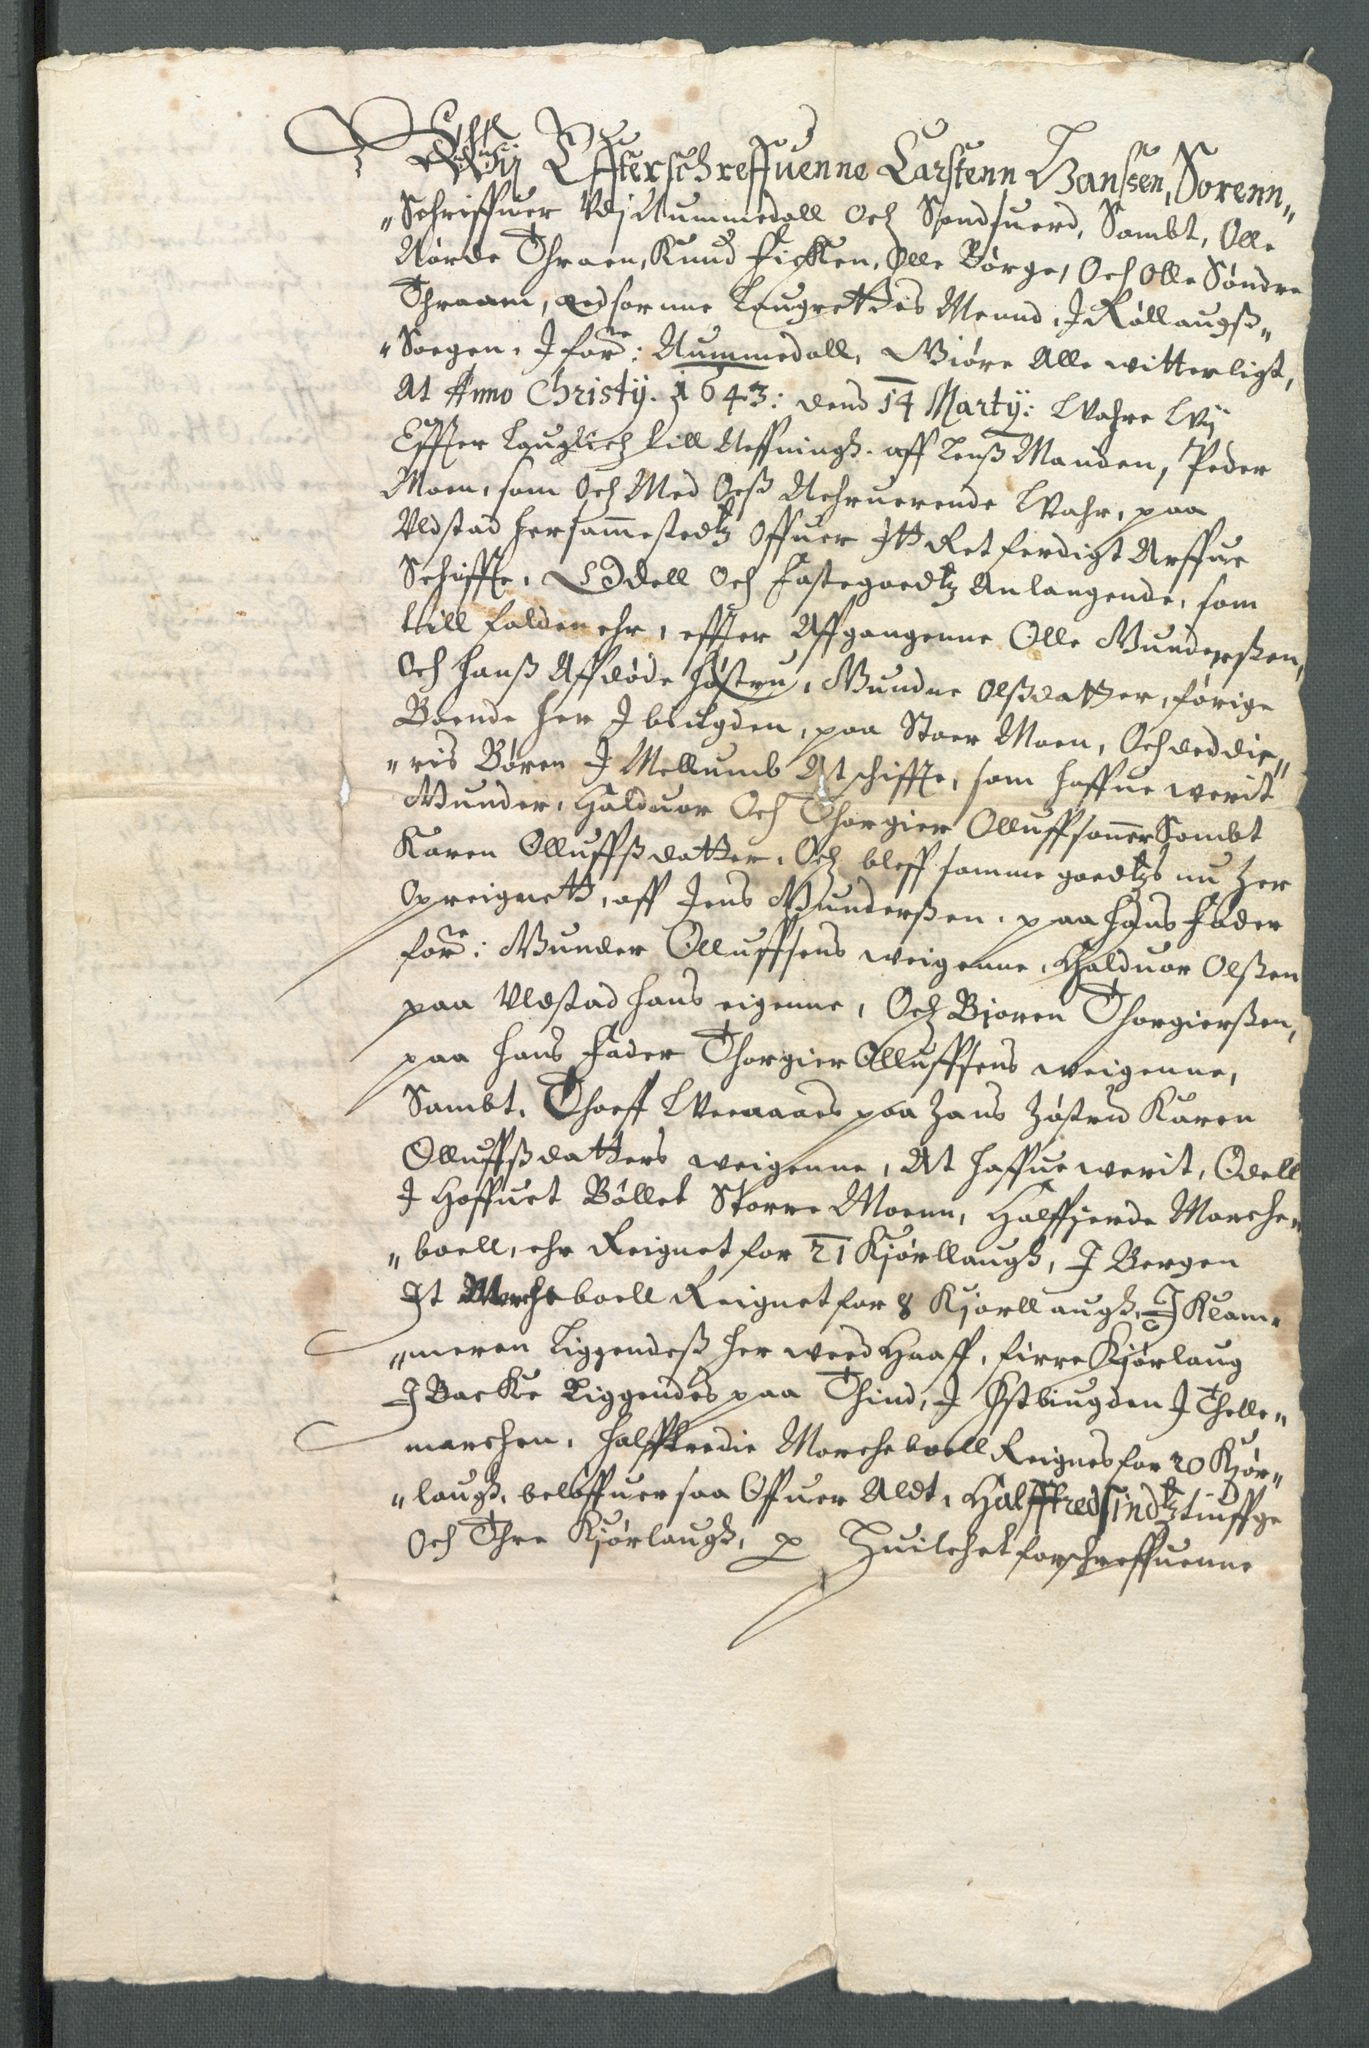 Wij Effterschreffuenne Carstenn Hanssen, Sorenn„
„Schriffuer Vdj Nummedall Och Sandsuerd, Sambt, Olle
Nørde Thraen, Knud Ficken, Olle Børge, Och Olle Søndre
Thraaen, Edsornne Laugrettis Mennd, J Rollaugß„
„Soegen, J forne: Nummedall, Giøre Alle witterligt,
At Anno Christy. 1643: dend 14 Marty: Wahre Wij
Effter Lauglich till Neffningß. aff Lenß Manden, Peder
Moen, som Och Med Oeß Nehruerende Wahr, paa
Vldstad hersammestedtz Offuer Jtt Ret ferdigt Arffue
Schiffte, Odell Och Fastegoedtz Anlangende, som
till falden ehr, effter Affgangenne Olle Gunderßen,
Och hanß Affdøde høstru, Gundne Olßdatter, førige
Boende her J bugden, paa Stoer Moen, Och ded die„
„ris Børen J Mellumb At schiffte, som haffue werit
Gunder, Halduor Och Thorgier Olluffsønner Sambt
Karen Olluffßdatter. Och bleff samme goedtzs nu her
Opreignett, aff Jens Gunderßen, paa hans Fader
forne: Gunder Olluffsens weigenne, Halduor Olßen
paa Vldstad hans eigenne, Och Bjoren Thorgierßen,
paa hans Fader Thorgier Olluffsens weigenne,
Sambt, Thoeff Weraaes paa hans høstru Karen
Olluffßdatters weigenne, At haffue werit, Odell
J Hoffuet Bøllet Storre Moenn, Halffierde Marche„
„boell, ehr Reignet for 21 Kjørllaugß, J Bergen
Jt Marcheboell Reignet for 8 Kjørllaugß, J Klam„
„meren Liggendeß her weed Haaff, firre Kjørlaug
J Backe Liggendes paa Thind, J Østbiugden J Thelle„
marchen, halfftredie Marcheboell Reignes for 20 Kjør„
„laugß, beløffuer saa Offuer Aldt, Halfftredsindtztiuffge
Och Thre Kjørlaugß, Huilchet forschreffuenne